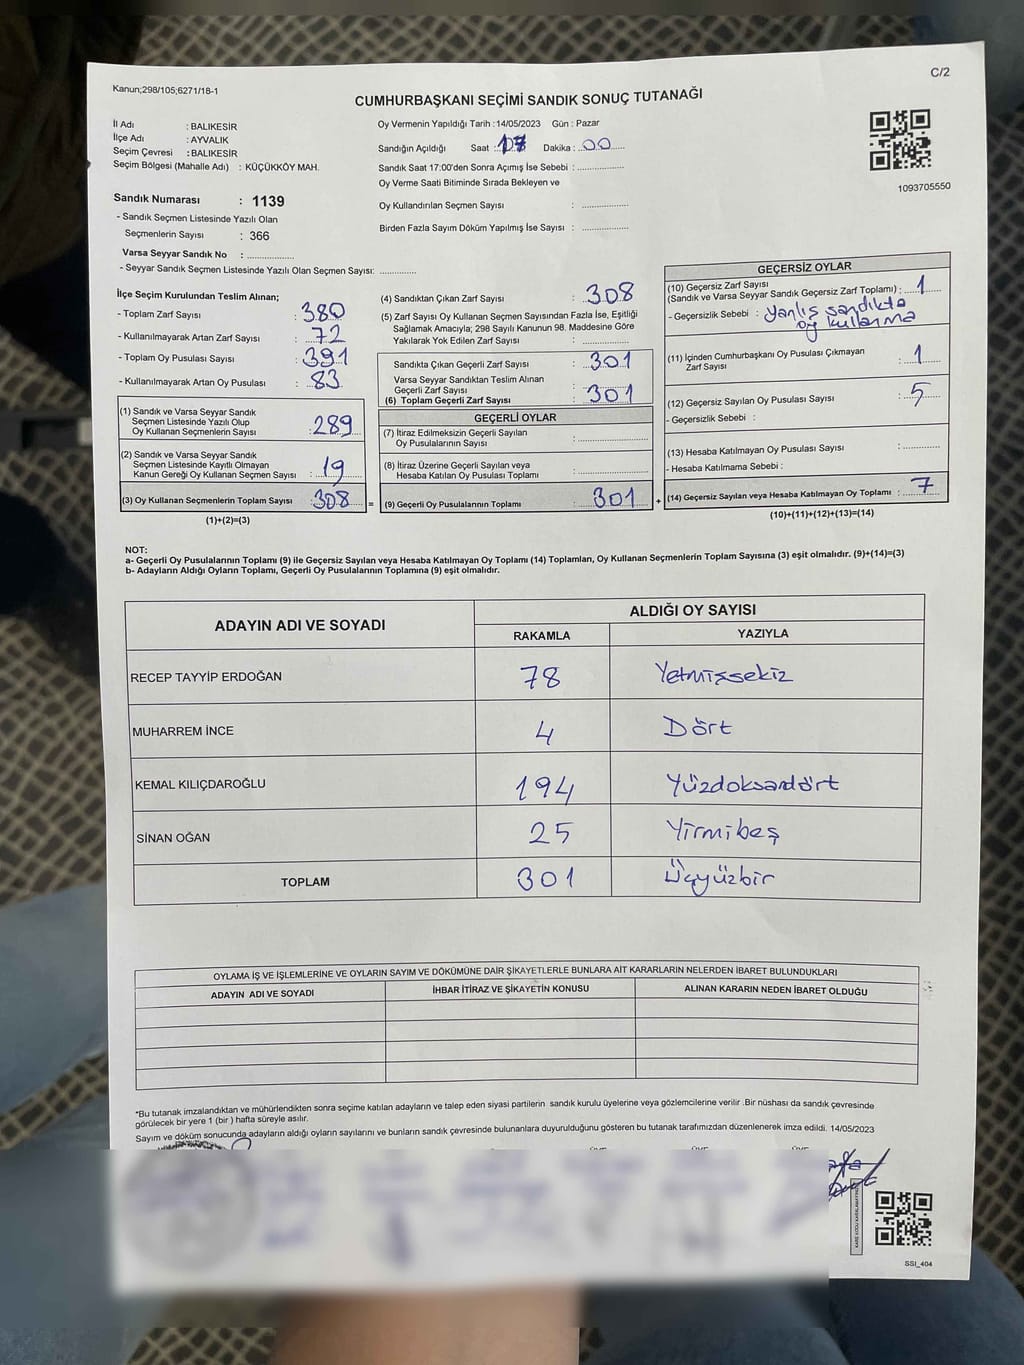 Kanun;298/105;6271/18-1
C/2
CUMHURBAŞKANI SEÇİMİ SANDIK SONUÇ TUTANAĞI
İl Adı : BALIKESİR
İlçe Adı : AYVALIK
Seçim Çevresi : BALIKESİR
Seçim Bölgesi (Mahalle Adı) : KÜÇÜKKÖY MAH.
Sandık Numarası : 1139
- Sandık Seçmen Listesinde Yazılı Olan
Seçmenlerin Sayısı : 366
Varsa Seyyar Sandık No : ................
- Seyyar Sandık Seçmen Listesinde Yazılı Olan Seçmen Sayısı: ............
Oy Vermenin Yapıldığı Tarih :14/05/2023 Gün : Pazar
Sandığın Açıldığı Saat : 17 Dakika : 00
Sandık Saat 17:00'den Sonra Açımış İse Sebebi : ................
Oy Verme Saati Bitiminde Sırada Bekleyen ve
Oy Kullandırılan Seçmen Sayısı : ................
Birden Fazla Sayım Döküm Yapılmış İse Sayısı : ................
1093705550
İlçe Seçim Kurulundan Teslim Alınan;
- Toplam Zarf Sayısı : 380
- Kullanılmayarak Artan Zarf Sayısı : 72
- Toplam Oy Pusulası Sayısı : 391
- Kullanılmayarak Artan Oy Pusulası : 83
(1) Sandık ve Varsa Seyyar Sandık
Seçmen Listesinde Yazılı Olup
Oy Kullanan Seçmenlerin Sayısı : 289
(2) Sandık ve Varsa Seyyar Sandık
Seçmen Listesinde Kayıtlı Olmayan
Kanun Gereği Oy Kullanan Seçmen Sayısı : 19
(3) Oy Kullanan Seçmenlerin Toplam Sayısı : 308 =
(1)+(2)=(3)
(4) Sandıktan Çıkan Zarf Sayısı : 308
(5) Zarf Sayısı Oy Kullanan Seçmen Sayısından Fazla İse, Eşitliği
Sağlamak Amacıyla; 298 Sayılı Kanunun 98. Maddesine Göre
Yakılarak Yok Edilen Zarf Sayısı : ................
Sandıkta Çıkan Geçerli Zarf Sayısı : 301
Varsa Seyyar Sandıktan Teslim Alınan
Geçerli Zarf Sayısı
(6) Toplam Geçerli Zarf Sayısı : 301
GEÇERLİ OYLAR
(7) İtiraz Edilmeksizin Geçerli Sayılan
Oy Pusulalarının Sayısı : ................
(8) İtiraz Üzerine Geçerli Sayılan veya
Hesaba Katılan Oy Pusulası Toplamı : ................
(9) Geçerli Oy Pusulalarının Toplamı : 301 +
GEÇERSİZ OYLAR
(10) Geçersiz Zarf Sayısı
(Sandık ve Varsa Seyyar Sandık Geçersiz Zarf Toplamı) : 1
- Geçersizlik Sebebi : Yanlış sandıkta
oy kullanma
(11) İçinden Cumhurbaşkanı Oy Pusulası Çıkmayan
Zarf Sayısı : 1
(12) Geçersiz Sayılan Oy Pusulası Sayısı : 5
- Geçersizlik Sebebi :
(13) Hesaba Katılmayan Oy Pusulası Sayısı : ............
- Hesaba Katılmama Sebebi :
(14) Geçersiz Sayılan veya Hesaba Katılmayan Oy Toplamı : 7
(10)+(11)+(12)+(13)=(14)
NOT:
a- Geçerli Oy Pusulalarının Toplamı (9) ile Geçersiz Sayılan veya Hesaba Katılmayan Oy Toplamı (14) Toplamları, Oy Kullanan Seçmenlerin Toplam Sayısına (3) eşit olmalıdır. (9)+(14)=(3)
b- Adayların Aldığı Oyların Toplamı, Geçerli Oy Pusulalarının Toplamına (9) eşit olmalıdır.
ADAYIN ADI VE SOYADI ALDIĞI OY SAYISI
RAKAMLA YAZIYLA
RECEP TAYYİP ERDOĞAN 78 Yetmişsekiz
MUHARREM İNCE 4 Dört
KEMAL KILIÇDAROĞLU 194 Yüzdoksandört
SİNAN OĞAN 25 Yirmibeş
TOPLAM 301 Üçyüzbir
OYLAMA İŞ VE İŞLEMLERİNE VE OYLARIN SAYIM VE DÖKÜMÜNE DAİR ŞİKAYETLERLE BUNLARA AİT KARARLARIN NELERDEN İBARET BULUNDUKLARI
ADAYIN ADI VE SOYADI İHBAR İTİRAZ VE ŞİKAYETİN KONUSU ALINAN KARARIN NEDEN İBARET OLDUĞU
*Bu tutanak imzalandıktan ve mühürlendikten sonra seçime katılan adayların ve talep eden siyasi partilerin sandık kurulu üyelerine veya gözlemcilerine verilir .Bir nüshası da sandık çevresinde
görülecek bir yere 1 (bir ) hafta süreyle asılır.
Sayım ve döküm sonucunda adayların aldığı oyların sayılarını ve bunların sandık çevresinde bulunanlara duyurulduğunu gösteren bu tutanak tarafımızdan düzenlenerek imza edildi. 14/05/2023
SSI_404